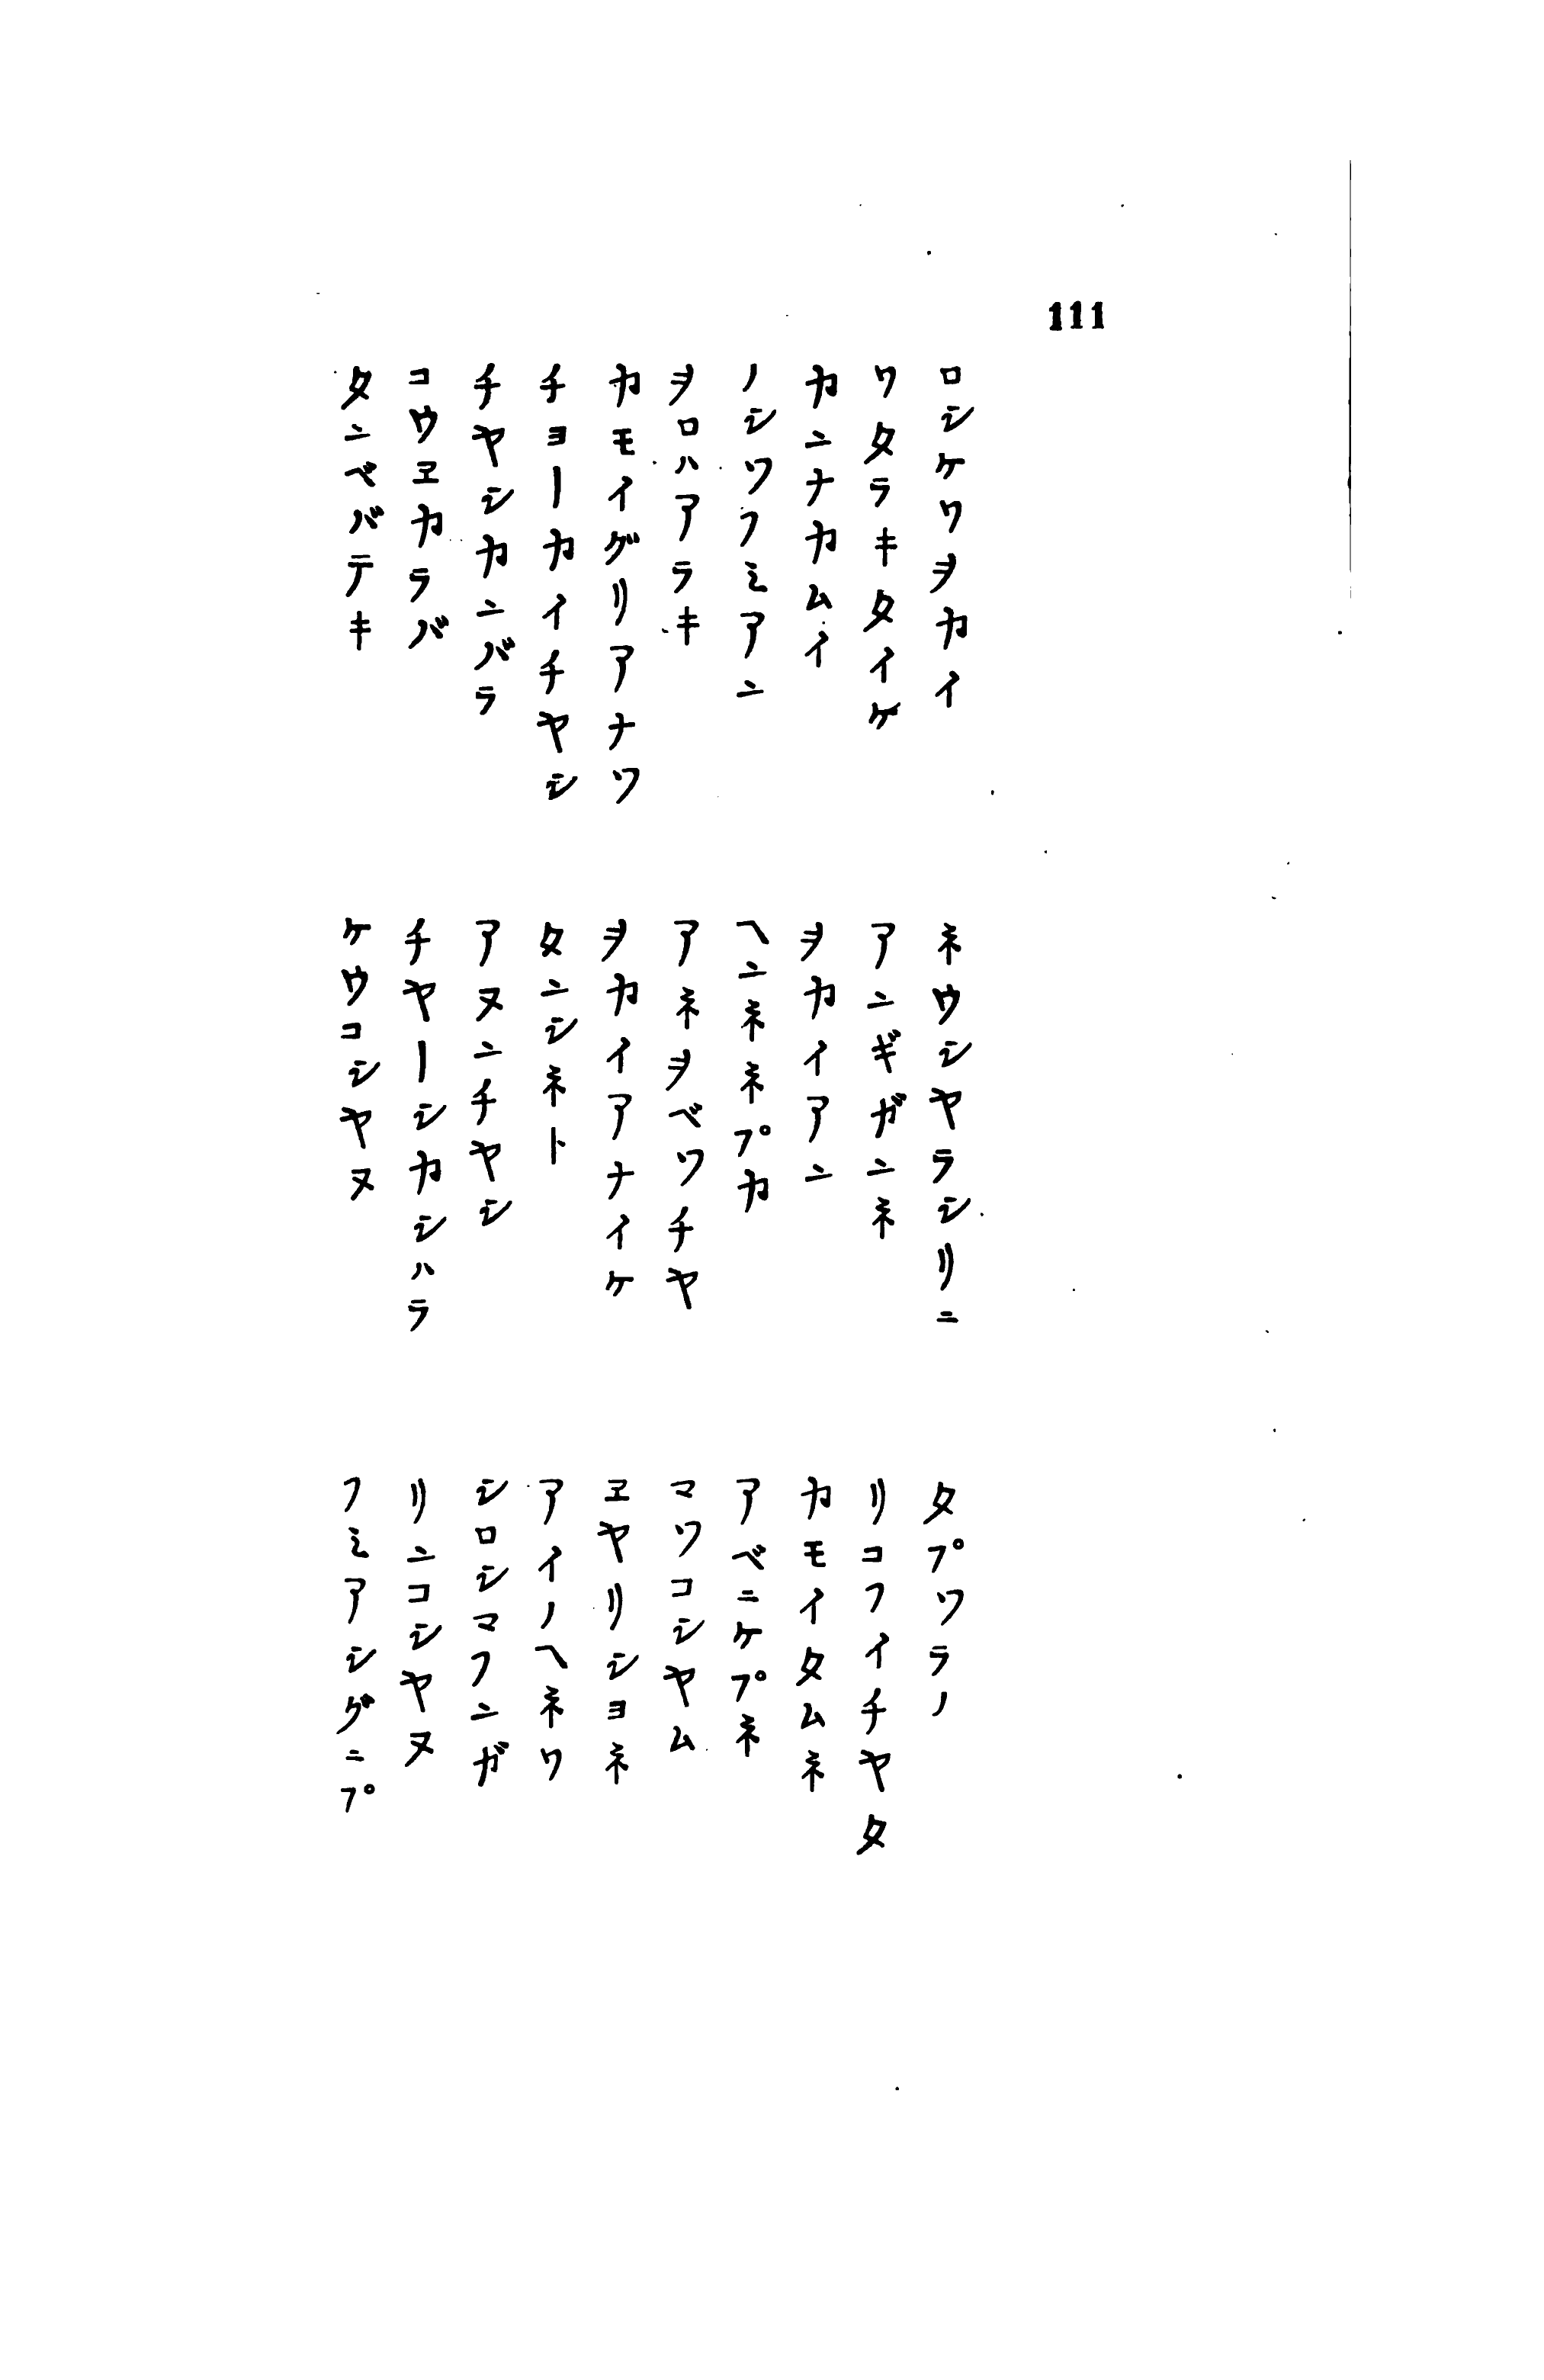 111
ロシケワヲカイ
ワタラキタイケ
カンナカムイ
ノシワフミアン
ヲロハアラキ
カモイグリアナワ
チヨーカイチヤシ
チヤシカンバラ
コウヱカラバ
タンベバテキ
ネウシヤラシリニ
アンギガンネ
ヲカイアン
ヘンネネプカ
アネヲベワチヤ
ヲカイアナイケ
タンシネト
アヌンチヤシ
チヤーシカシハラ
ケウコシヤヌ
タプワラノ
リコフイチヤタ
カモイタムネ
アベニケプネ
マワコシヤム
ヱヤリシヨネ
アイノヘネワ
シロシマフンガ
リンコシヤヌ
フミアシグニプ